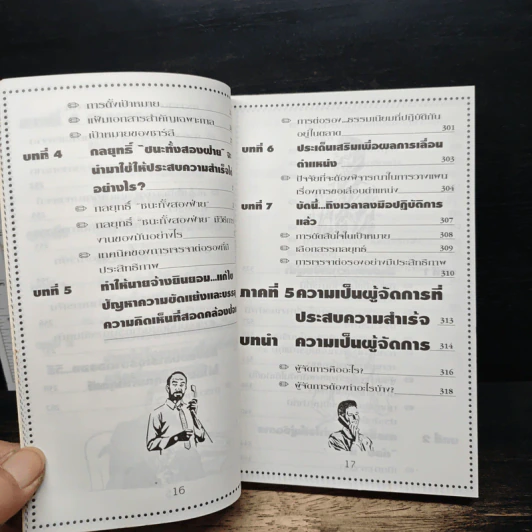 การตั้งเป้าหมาย
แฟ้มเอกสารสำคัญเฉพาะกาล
เป้าหมายของชาร์ลี
บทที่ 4 กลยุทธ์ "ชนะทั้งสองฝ่าย"
นำมาใช้ให้ประสบความสำเร็จได้
อย่างไร?
กลยุทธ์ "ชนะทั้งสองฝ่าย"
กลยุทธ์ "ชนะทั้งสองฝ่าย" มีวิธีการ
งานของมันอย่างไร
เทคนิคของการเจรจาต่อรองที่มี
ประสิทธิภาพ
บทที่ 5 ทำให้นายจ้างยินยอม...แก้ไข
ปัญหาความขัดแย้งและบรรลุ
ความคิดเห็นที่สอดคล้อง
16
การต่อรอง...ธรรมเนียมที่ปฏิบัติกัน
อยู่ในตลาด 301
บทที่ 6 ประเด็นเสริมเพื่อผลการเลื่อน
ตำแหน่ง 303
ปัจจัยที่จะต้องพิจารณาในการวางแผน
เรื่องการขอเลื่อนตำแหน่ง 304
บทที่ 7 บัดนี้...ถึงเวลาลงมือปฏิบัติการ
แล้ว 307
การตัดสินใจในเป้าหมาย 308
เลือกสรรกลยุทธ์ 309
การเจรจาต่อรองอย่างมีประสิทธิภาพ
310
ภาคที่ 5 ความเป็นผู้จัดการที่
ประสบความสำเร็จ 313
บทนำ ความเป็นผู้จัดการ 314
ผู้จัดการคืออะไร? 316
ผู้จัดการต้องทำอะไรบ้าง? 318
17